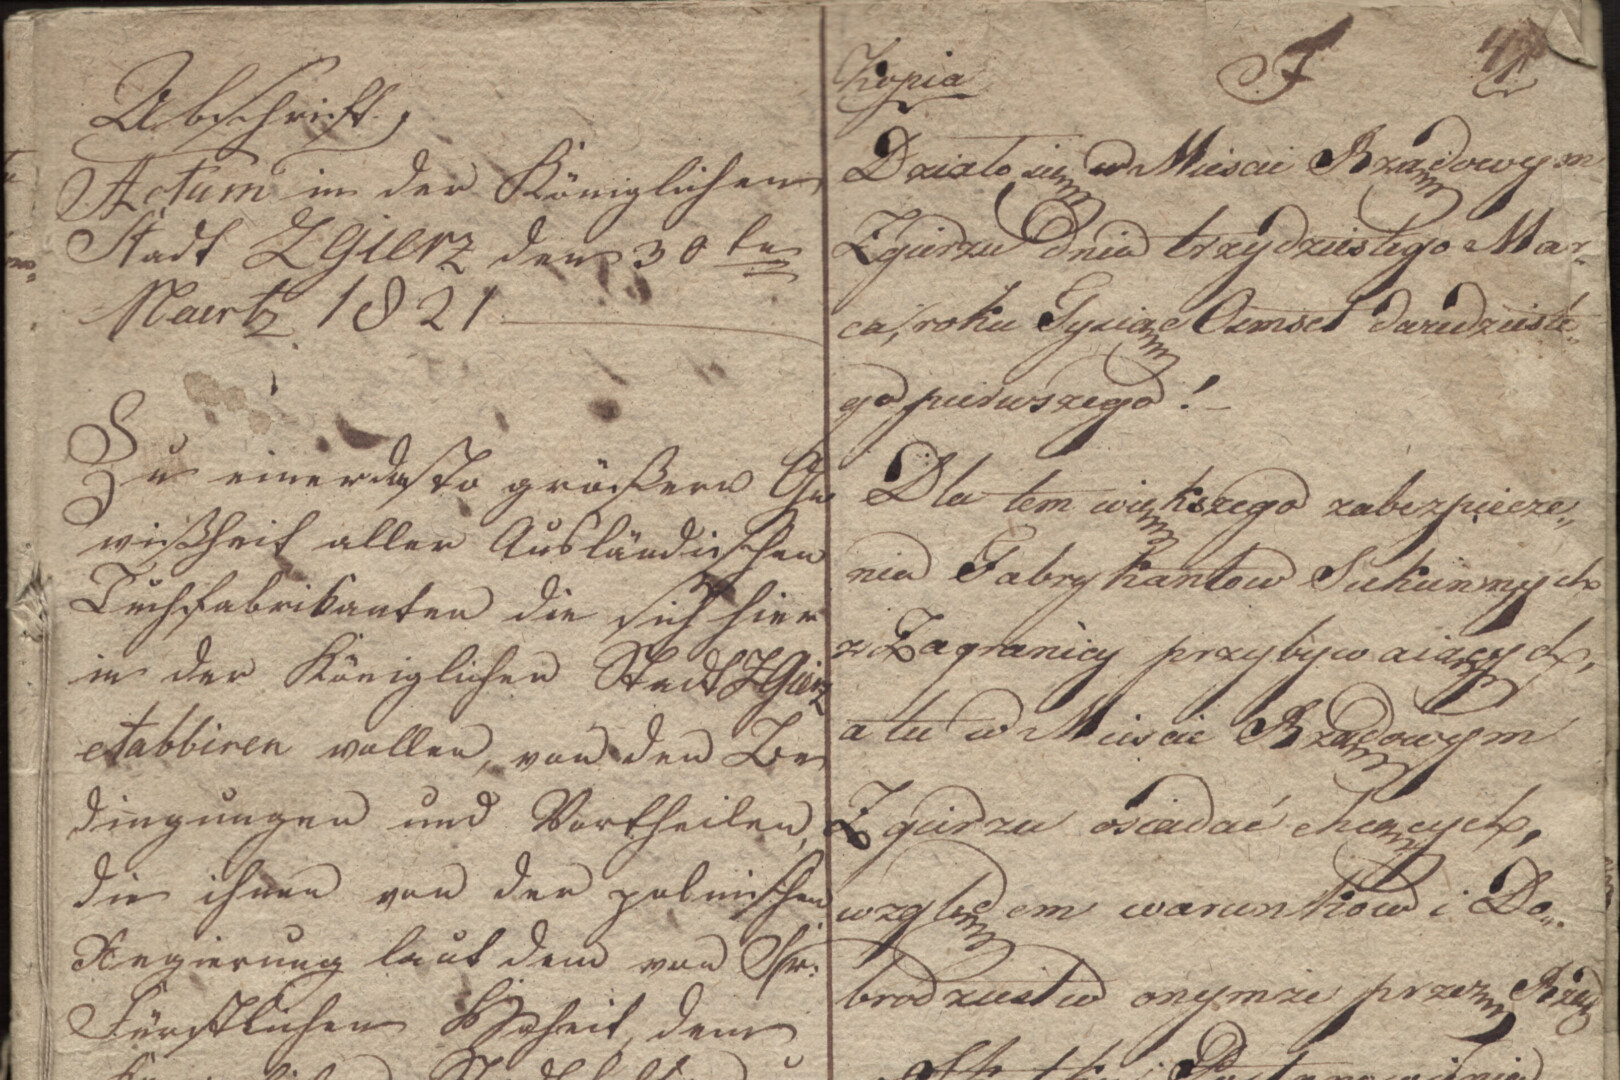 Abschrift,
Actum in der Königlichen
Stadt Zgierz den 30ten
Maertz 1821
Zu einer desto größern Ge
wißheit aller Ausländischen
Tuchfabrikanten die sich hier
in der Königlichen Stadt Zgierz
etabbiren wollen, von den Be
dingungen und Vortheilen,
die ihnen von der polnischen
Regierung laut dem von Sr:
Fürstlichen Hoheit, dem
Kopia
Działo się w Miescie Rządowym
Zgierzu dnia trzydziestego Mar„
ca, roku Tysiąc Osmset dwudzieste„
go pierwszego!
Dla tem większego zabezpiecze„
nia Fabrykantow Sukiennych
z Zagranicy przybywaiących,
a tu w Miescie Rządowym
Zgierzu osiadać chcących,
względem warunkow i Do„
brodzieistw onymże przez Rząd